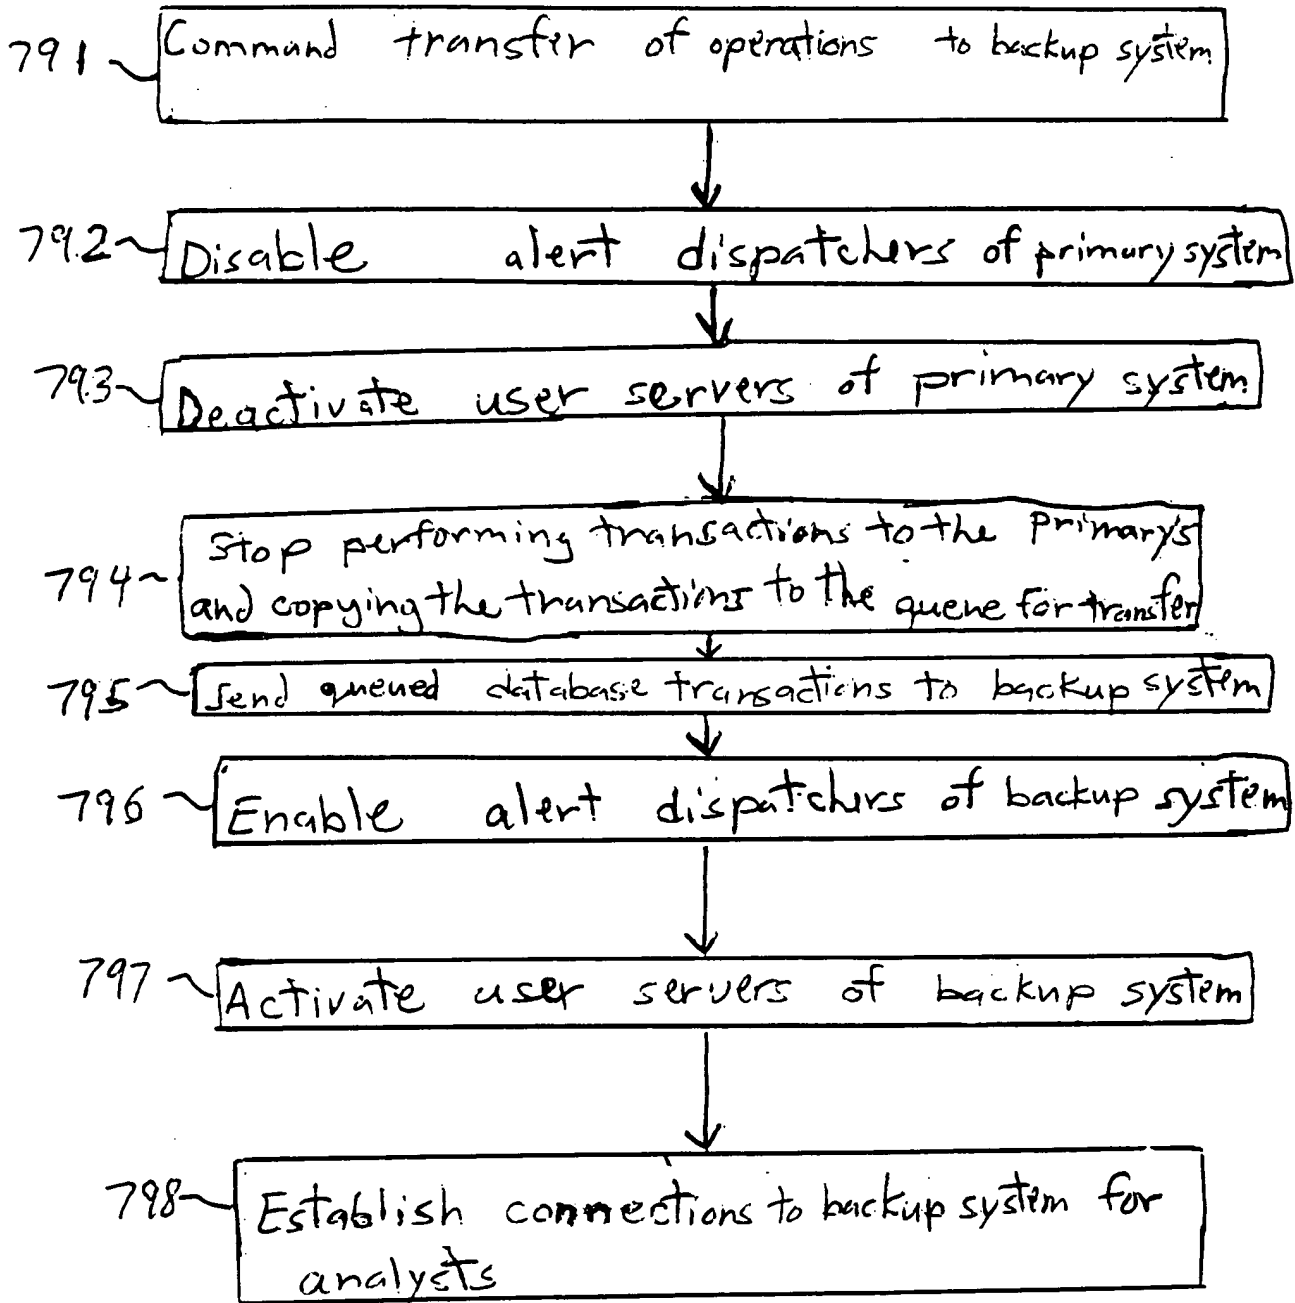 791 Command transfer of operations to backup system
792 Disable alert dispatchers of primary system
793 Deactivate user servers of primary system
Stop performing transactions to the primary's
794 and copying the transactions to the quene for transfer
795 Send queued database transactions to backup system
796 Enable alert dispatchers of backup system
797 Activate user servers of backup system
798 Establish connections to backup system for
analysts